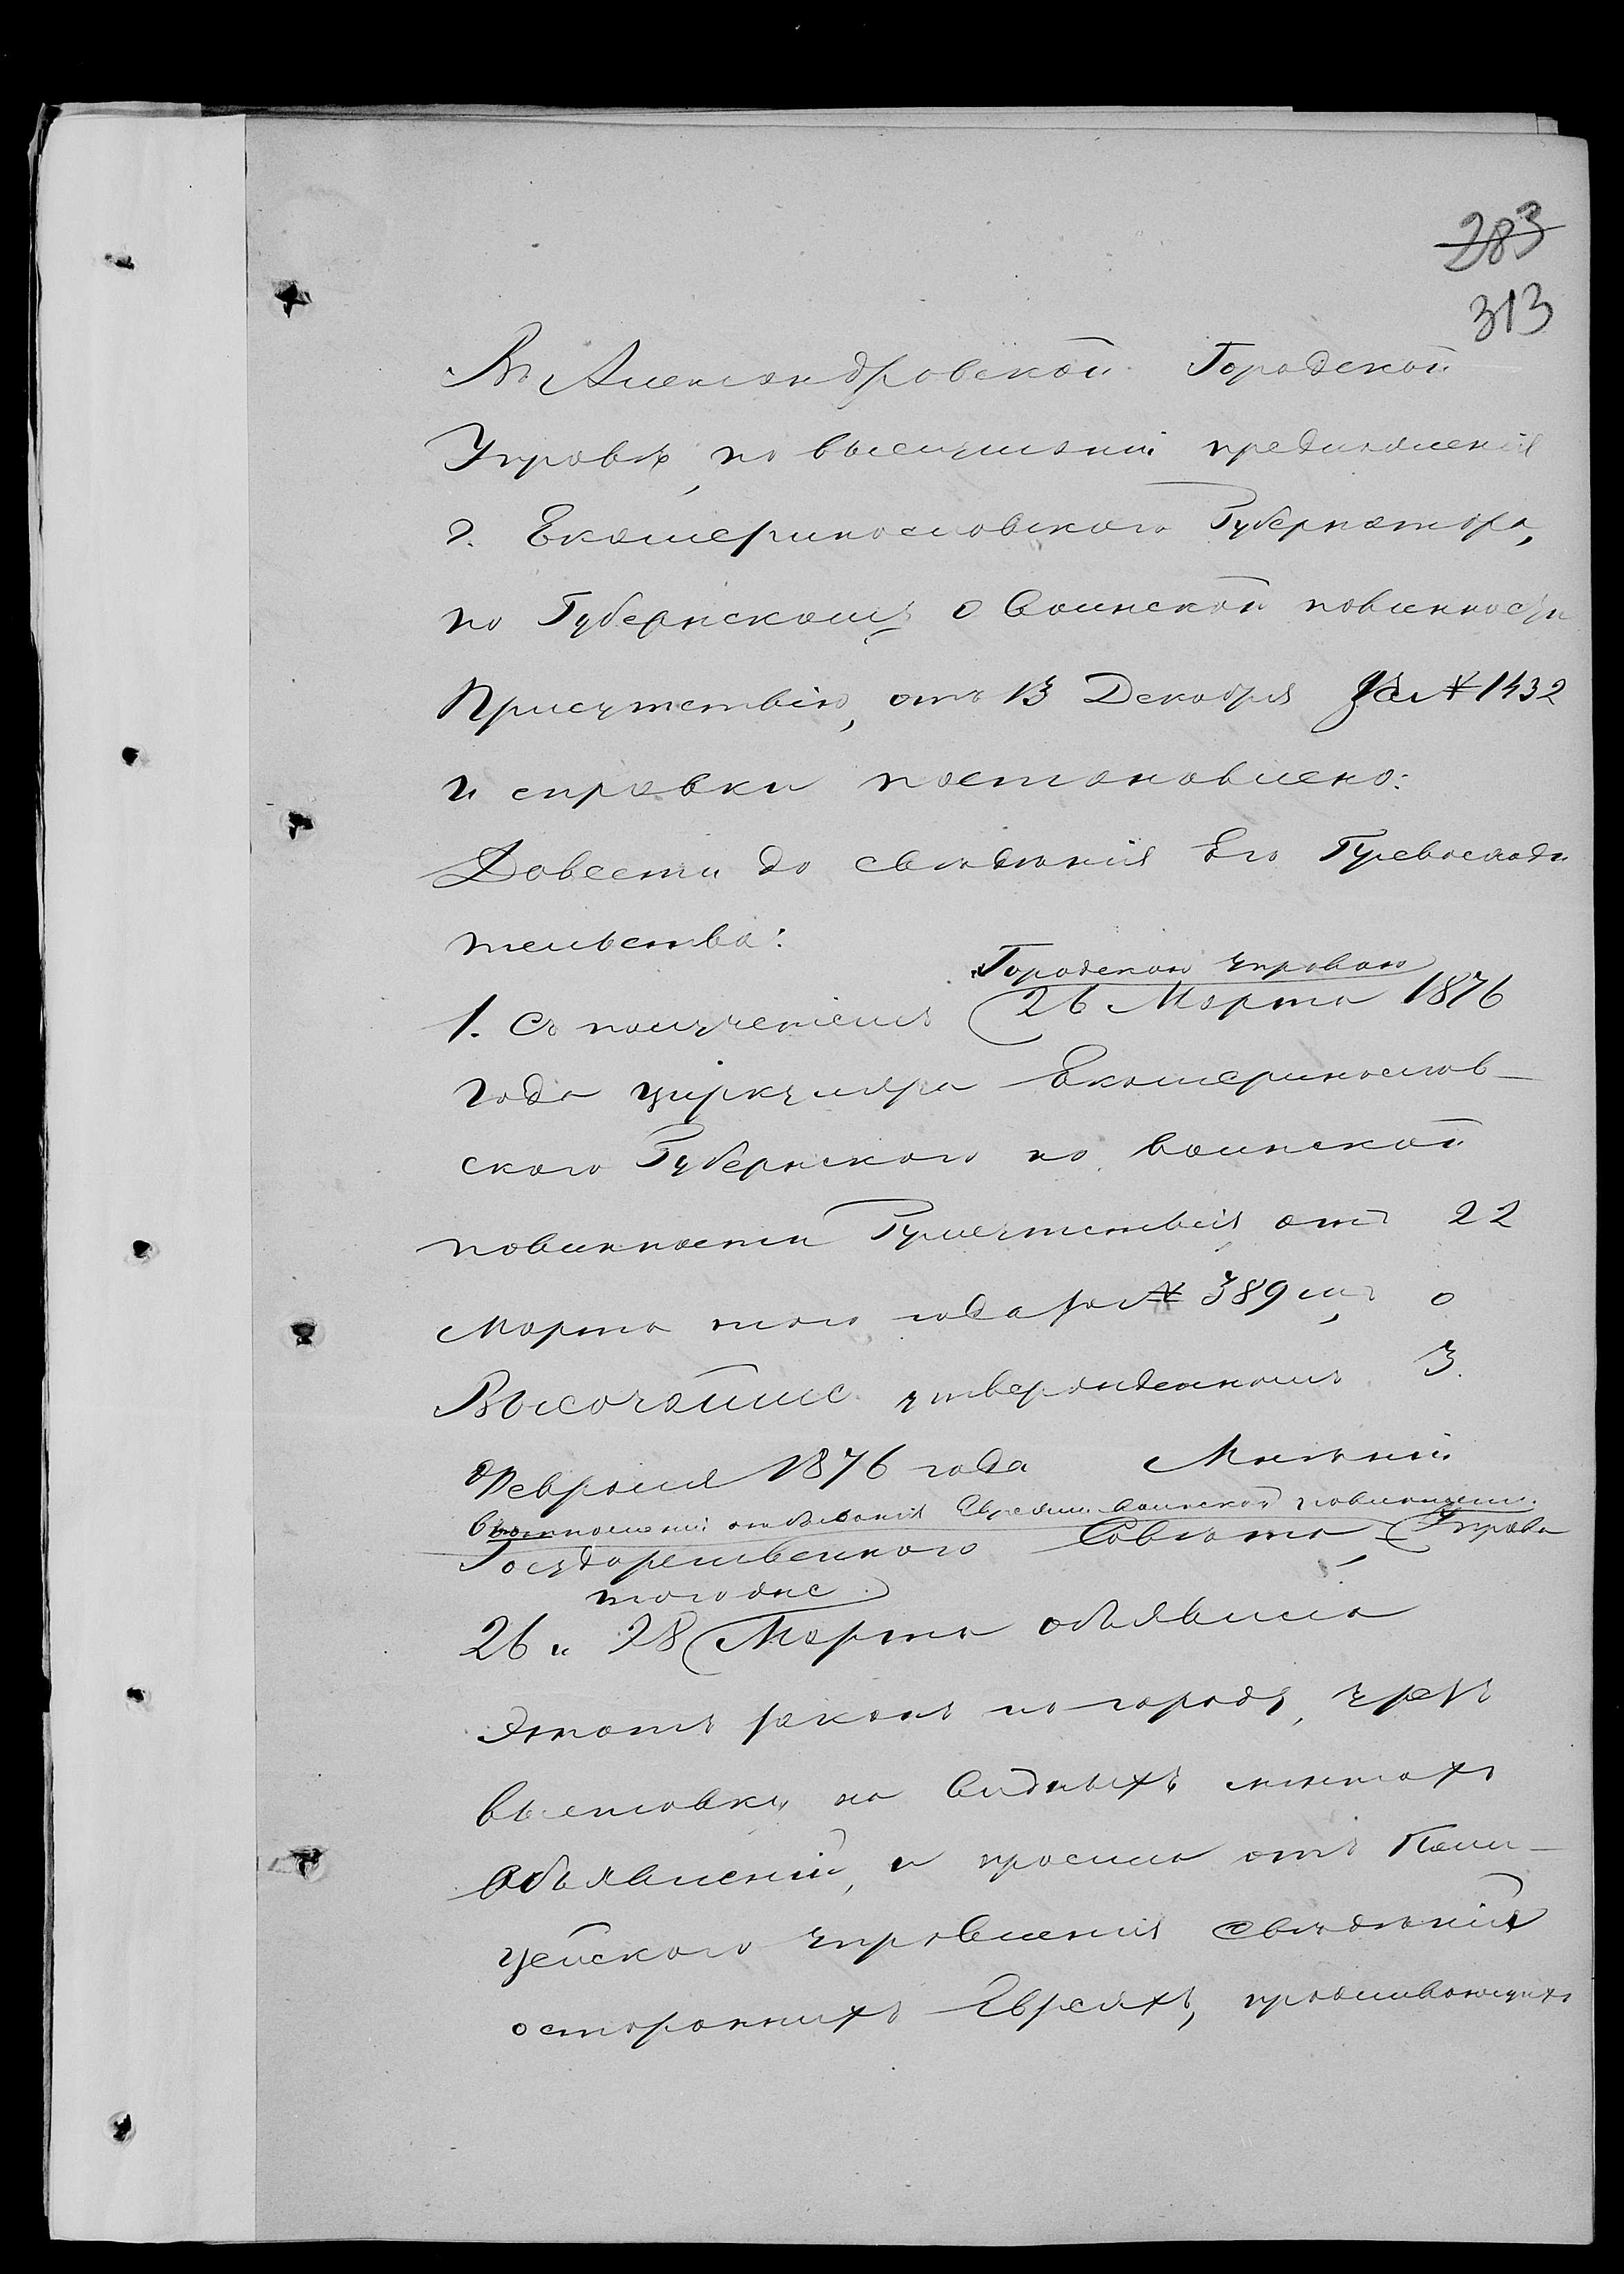 283
313
Въ Александровской Городской
Управѣ, по выслушаніи предложенія
г. Екатеринославскаго Губернатора,
по Губернскому о воинской повинности
Присутствію, отъ 13 Декабря за № 1432
и справки постановлено:
Довести до свѣдѣнія Его Превосходи
тельства:
Городскою Управою
1. Съ полученіемъ 26 Марта 1876
года циркуляра Екатеринослав-
скаго Губернскаго по воинской
повинности Присутствія отъ 22
Марта того года за № 389мъ, о
Высочайше утвержденномъ 3
Февраля 1876 года Мнѣніи
в отношеніи отбыванія Евреями воинской повинности
Государственнаго Совѣта, Управа
того же
26 и 28 Марта объявила
этотъ законъ по городу, чрезъ
выставку на видныхъ мѣстахъ
объявленій, и просила отъ Поли-
цейскаго Управленія свѣдѣнія
о стороннихъ Евреяхъ, проживающихъ